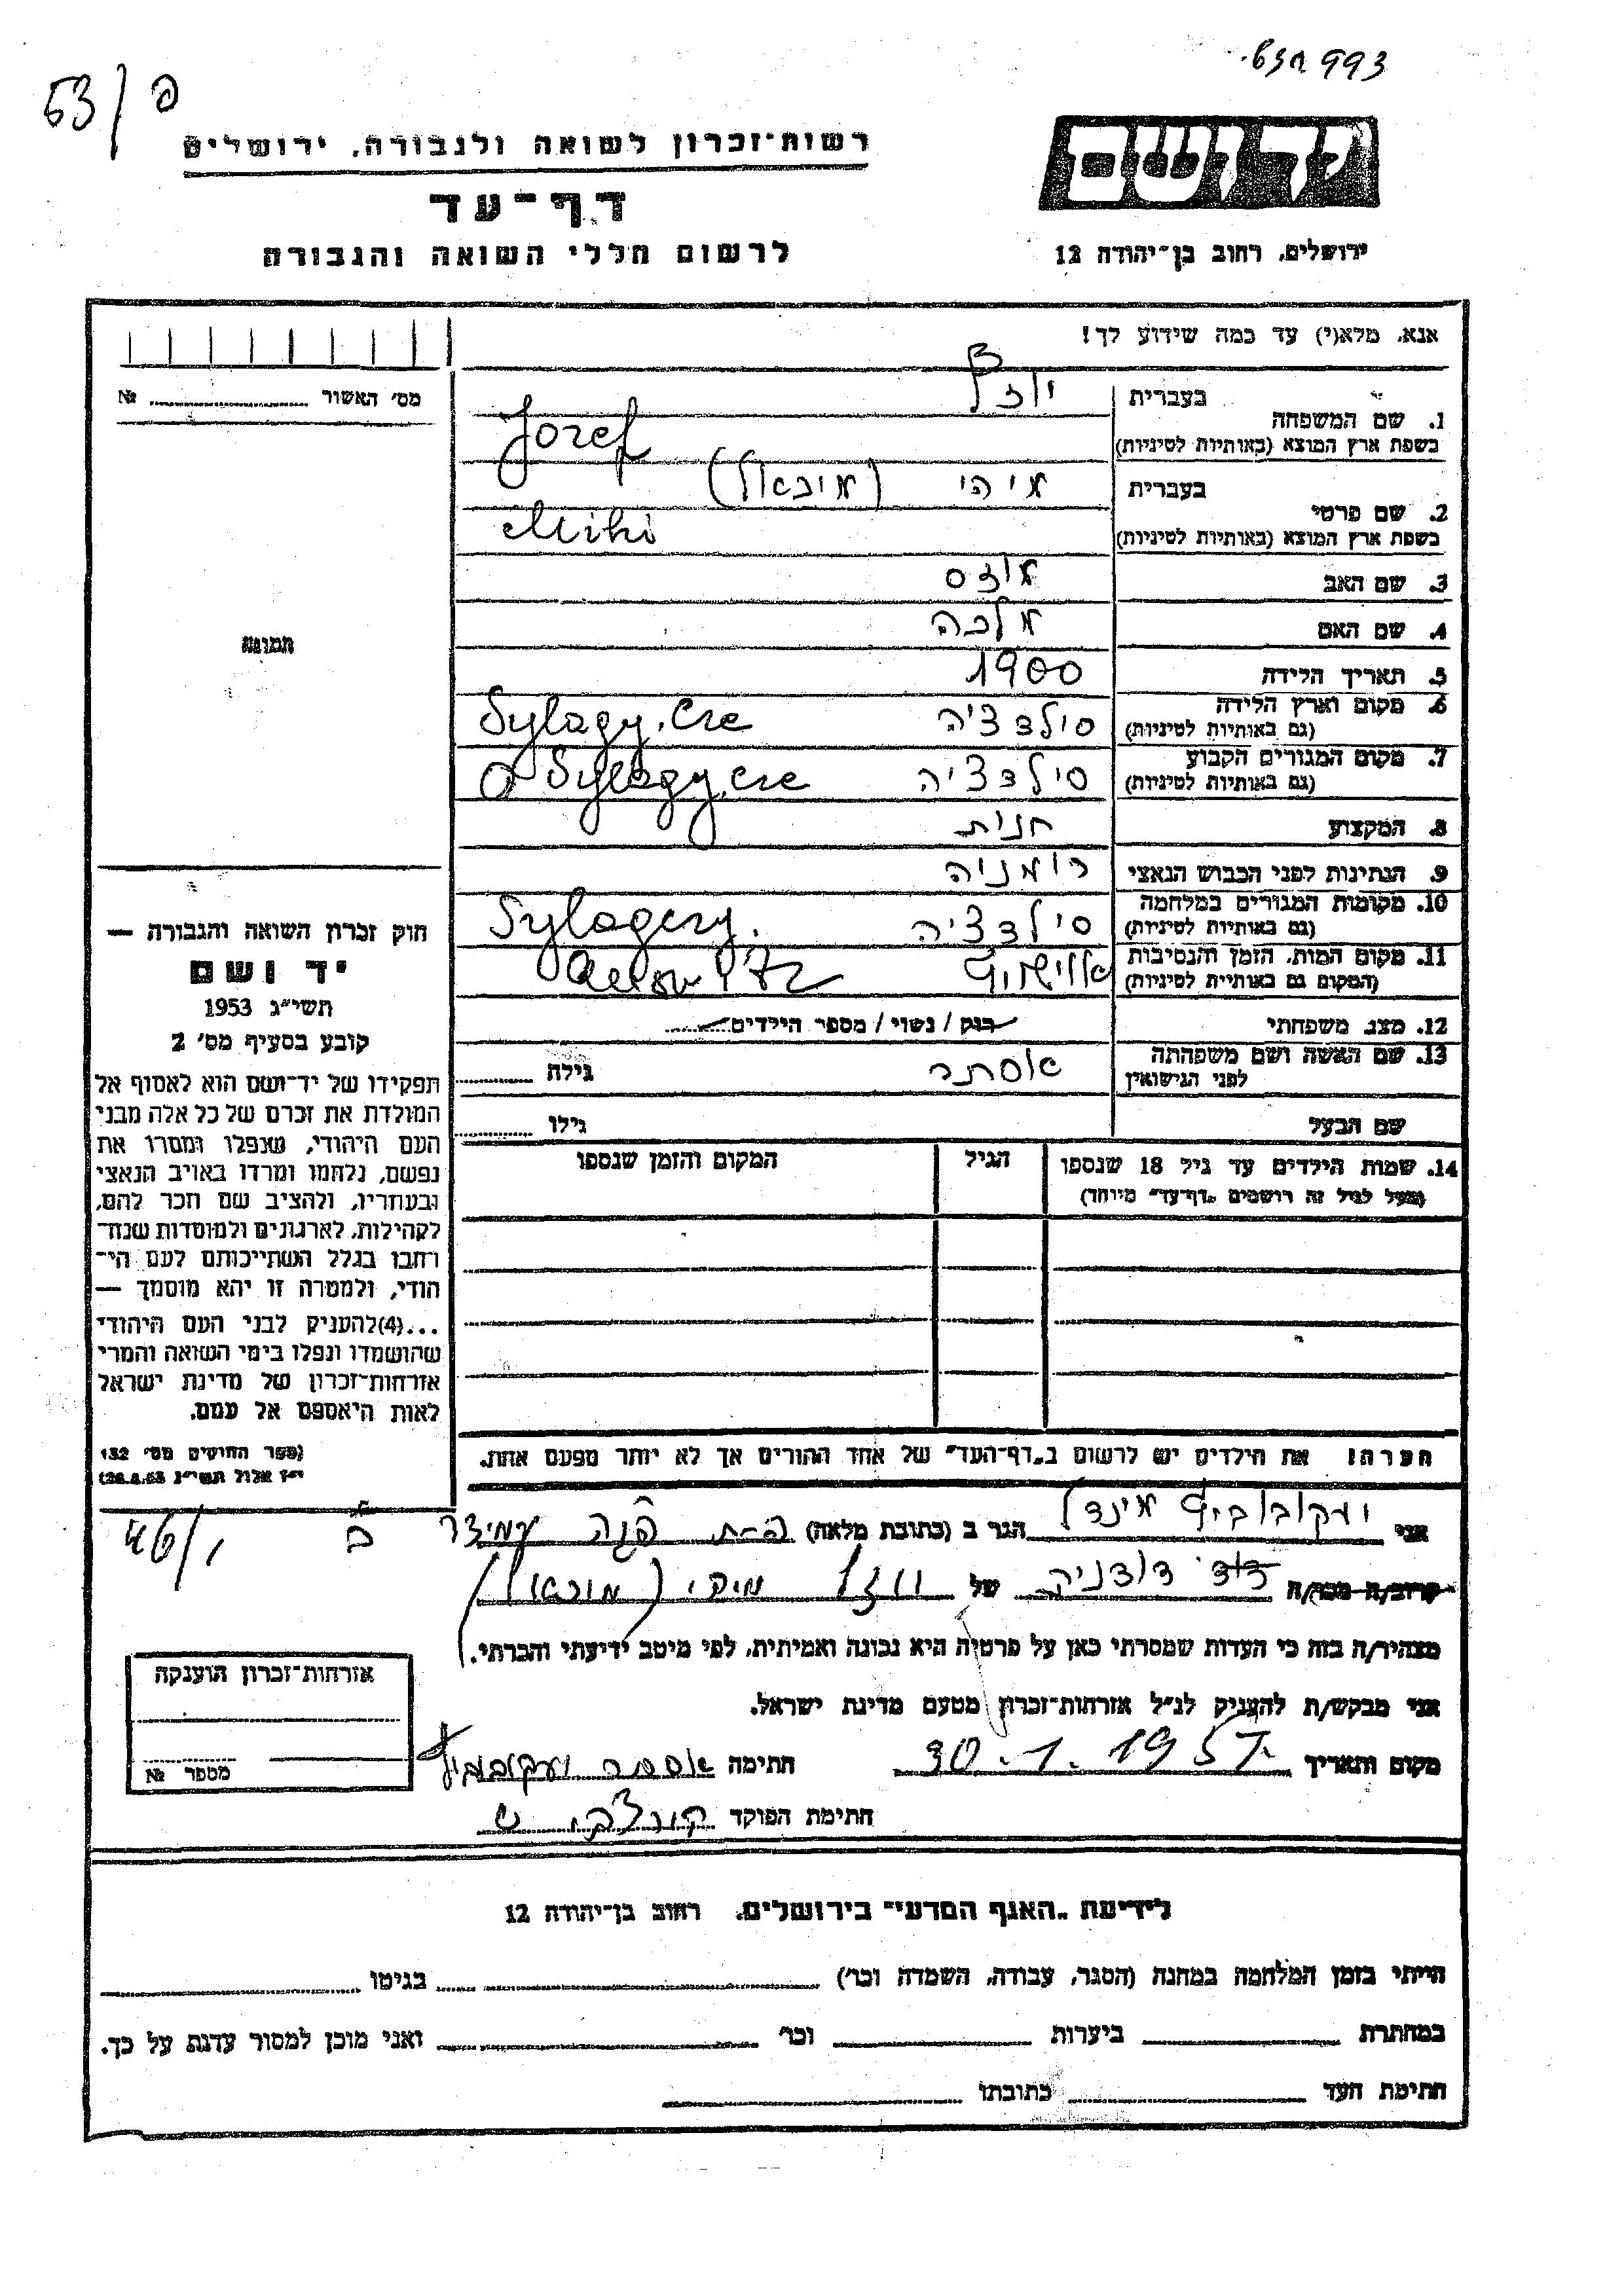 993
53/פ
רשות־זכרון לשואה ולגבורה, ירושלים
דף־עד
לרשום חללי השואה והגבורה
יד ושם
ירושלים, רחוב בן־יהודה 12
אנא, מלא(י) עד כמה שידוע לך!
מס' האשור № ............
תמונה
1. שם המשפחה
בעברית יוזף
בשפת ארץ המוצא (באותיות לטיניות) Jozef
2. שם פרטי
בעברית מיהי (מיכאל)
בשפת ארץ המוצא (באותיות לטיניות) Mihi
3. שם האב
4. שם האם מלכה
5. תאריך הלידה 1900
6. מקום וארץ הלידה
(גם באותיות לטיניות) Sylagy.Cre
7. מקום המגורים הקבוע
(גם באותיות לטיניות) Sylagy.cre
8. המקצוע
9. הנתינות לפני הכבוש הנאצי רומניה
10. מקומות המגורים במלחמה
(גם באותיות לטיניות)
11. מקום המות, הזמן והנסיבות
(המקום גם באותיות לטיניות)
12. מצב משפחתי רווק / נשוי / מספר הילדים
13. שם האשה ושם משפחתה
לפני הנישואין אסתר
גילה ............
שם הבעל
גילו ............
14. שמות הילדים עד גיל 18 שנספו
(מעל לגיל זה רושמים „דף־עד" מיוחד)
הגיל
המקום והזמן שנספו
הערה: את הילדים יש לרשום ב„דף־העד" של אחד ההורים אך לא יותר מפעם אחת.
חוק זכרון השואה והגבורה —
יד ושם
תשי״ג 1953
קובע בסעיף מס' 2
תפקידו של יד־ושם הוא לאסוף אל
המולדת את זכרם של כל אלה מבני
העם היהודי, שנפלו ומסרו את
נפשם, נלחמו ומרדו באויב הנאצי
ובעוזריו, ולהציב שם וזכר להם,
לקהילות, לארגונים ולמוסדות שנח־
רבו בגלל השתייכותם לעם הי־
הודי, ולמטרה זו יהא מוסמך —
...(4)להעניק לבני העם היהודי
שהושמדו ונפלו בימי השואה והמרי
אזרחות־זכרון של מדינת ישראל
לאות היאספם אל עמם.
(ספר החוקים מס' 132
י״ז אלול תשי״ג 28.8.53)
46/1
אני הגר ב (כתובת מלאה)
קרוב/ה מכר/ה של
מצהיר/ה בזה כי העדות שמסרתי כאן על פרטיה היא נכונה ואמיתית, לפי מיטב ידיעתי והכרתי.
אני מבקש/ת להעניק לנ״ל אזרחות־זכרון מטעם מדינת ישראל.
מקום ותאריך 30.1.1957 חתימה אסתר
חתימת הפוקד
אזרחות־זכרון הוענקה
מספר №
לידיעת „האגף המדעי" בירושלים, רחוב בן־יהודה 12
הייתי בזמן המלחמה במחנה (הסגר, עבודה, השמדה וכר') ............ בגיטו ............
במחתרת ............ ביערות ............ וכר' ............ ואני מוכן למסור עדות על כך.
חתימת העד ............ כתובתו ............